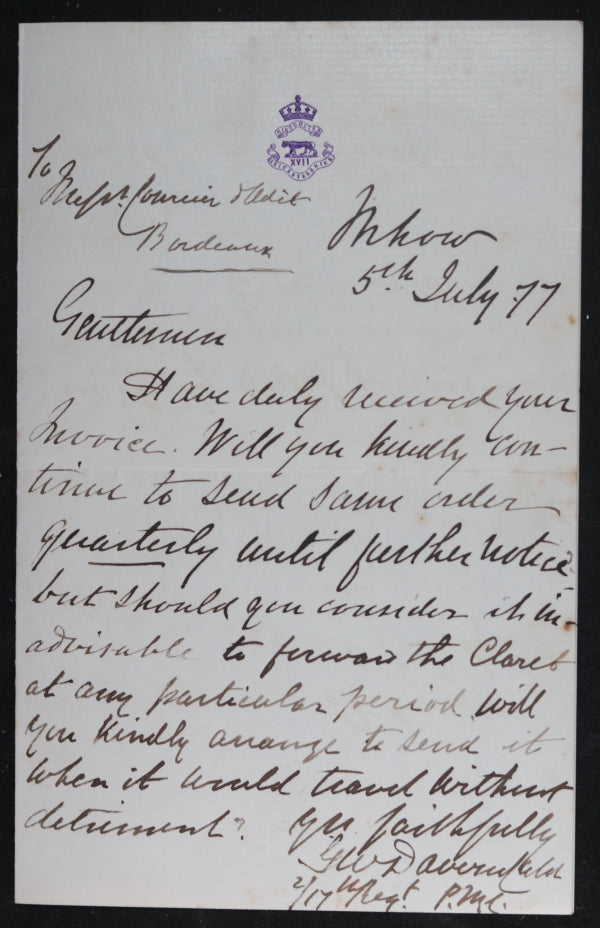 HINDOOSTAN
XVII
LEICESTERSHIRE
To
Messrs.
Bordeaux
Mhow
5th July 77
Gentlemen
Have duly received your
Invoice. Will you kindly con-
tinue to send same order
quarterly until further notice
but should you consider it in-
advisable to forward the Claret
at any particular period will
you kindly arrange to send it
when it would travel without
detriment.
Yrs faithfully
2/17th Regt. P.M.C.